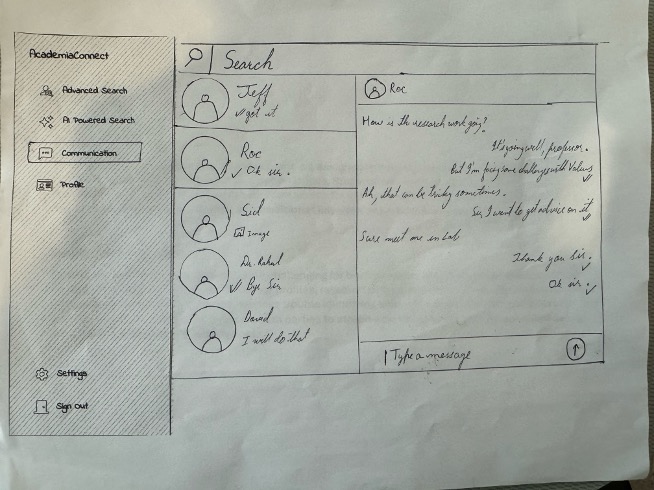 AcademiaConnect
Advanced Search
AI Powered Search
Communication
Profile
Settings
Sign Out
Search
Jeff
got it
Roc
Ok sir.
Sid
Image
Dr. Rahul
Bye Sir
David
I will do that
Roc
How is the research work going?
It's going well, professor.
But I'm facing some challenges with Values
Ah, that can be tricky sometimes.
Sir, I want to get advice on it
Sure meet me in Lab
Thank you Sir.
Ok sir.
Type a message